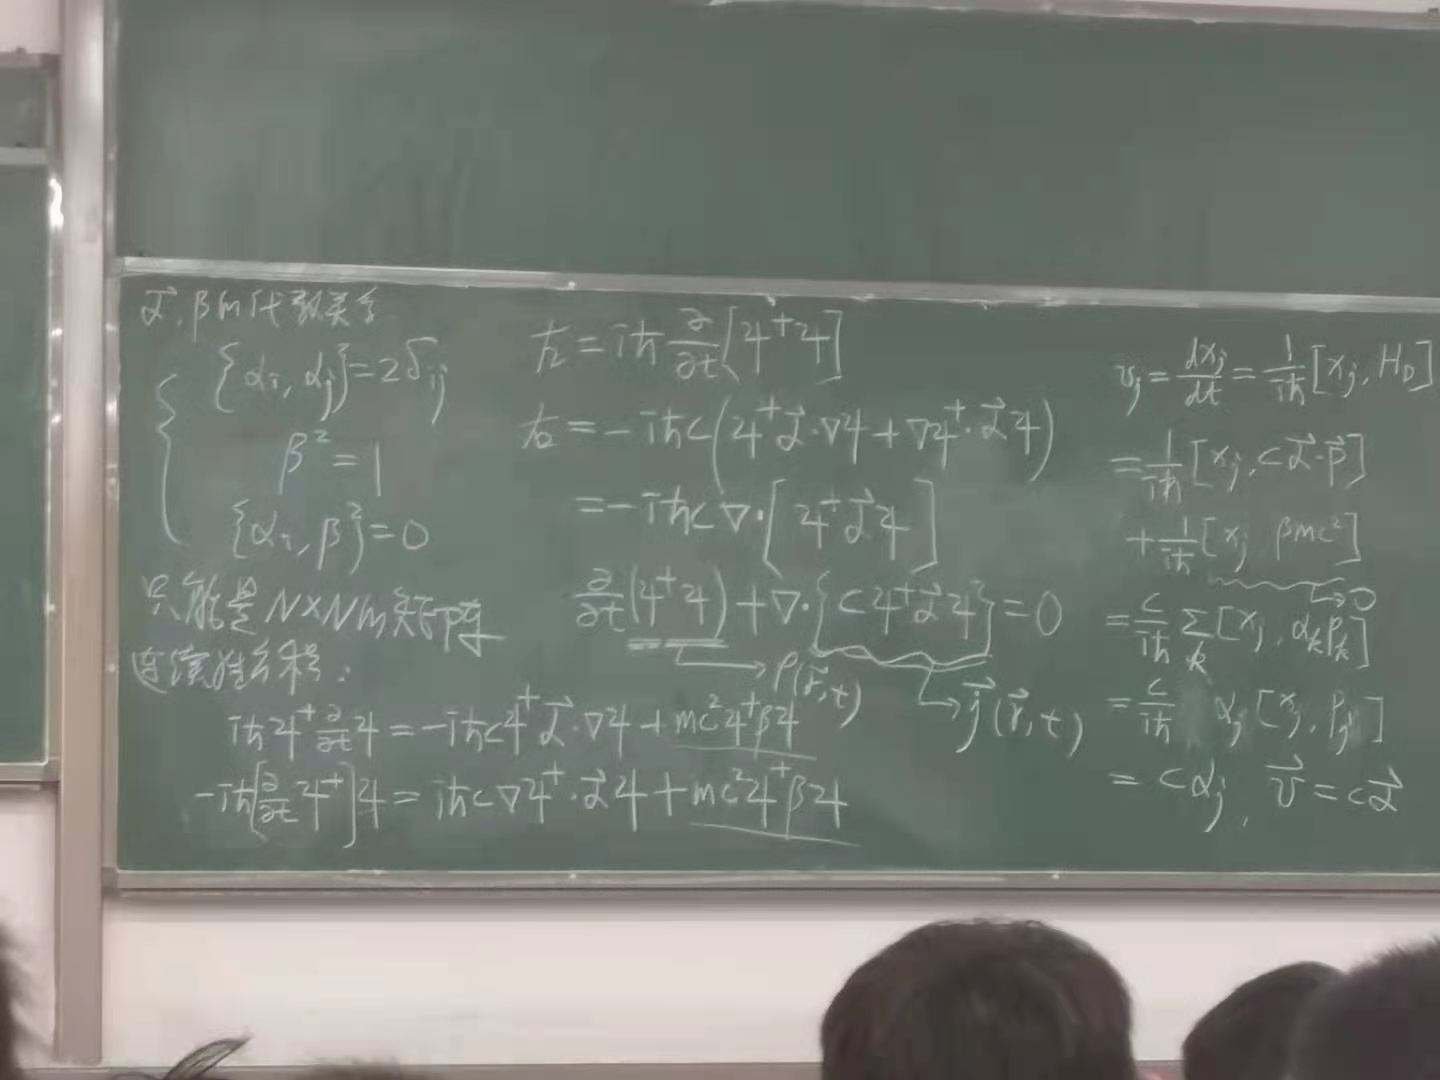 α⃗, β的代数关系
{αᵢ, αⱼ} = 2δᵢⱼ
β² = 1
{αᵢ, β} = 0
只能是N×N的矩阵
连续性方程:
iħψ⁺ ∂/∂t ψ = -iħcψ⁺α⃗·∇ψ + mc²ψ⁺βψ
-iħ[∂/∂t ψ⁺]ψ = iħc∇ψ⁺·α⃗ψ + mc²ψ⁺βψ
左 = iħ ∂/∂t [ψ⁺ψ]
右 = -iħc(ψ⁺α⃗·∇ψ + ∇ψ⁺·α⃗ψ)
= -iħc∇·[ψ⁺α⃗ψ]
∂/∂t (ψ⁺ψ) + ∇·{cψ⁺α⃗ψ} = 0
→ρ(r⃗,t)
→j⃗(r⃗,t)
vⱼ = dxⱼ/dt = 1/iħ [xⱼ, H_D]
= 1/iħ [xⱼ, cα⃗·p⃗]
+ 1/iħ [xⱼ, βmc²]
→0
= c/iħ Σₖ [xⱼ, αₖpₖ]
= c/iħ αⱼ[xⱼ, pⱼ]
= cαⱼ, v⃗ = cα⃗